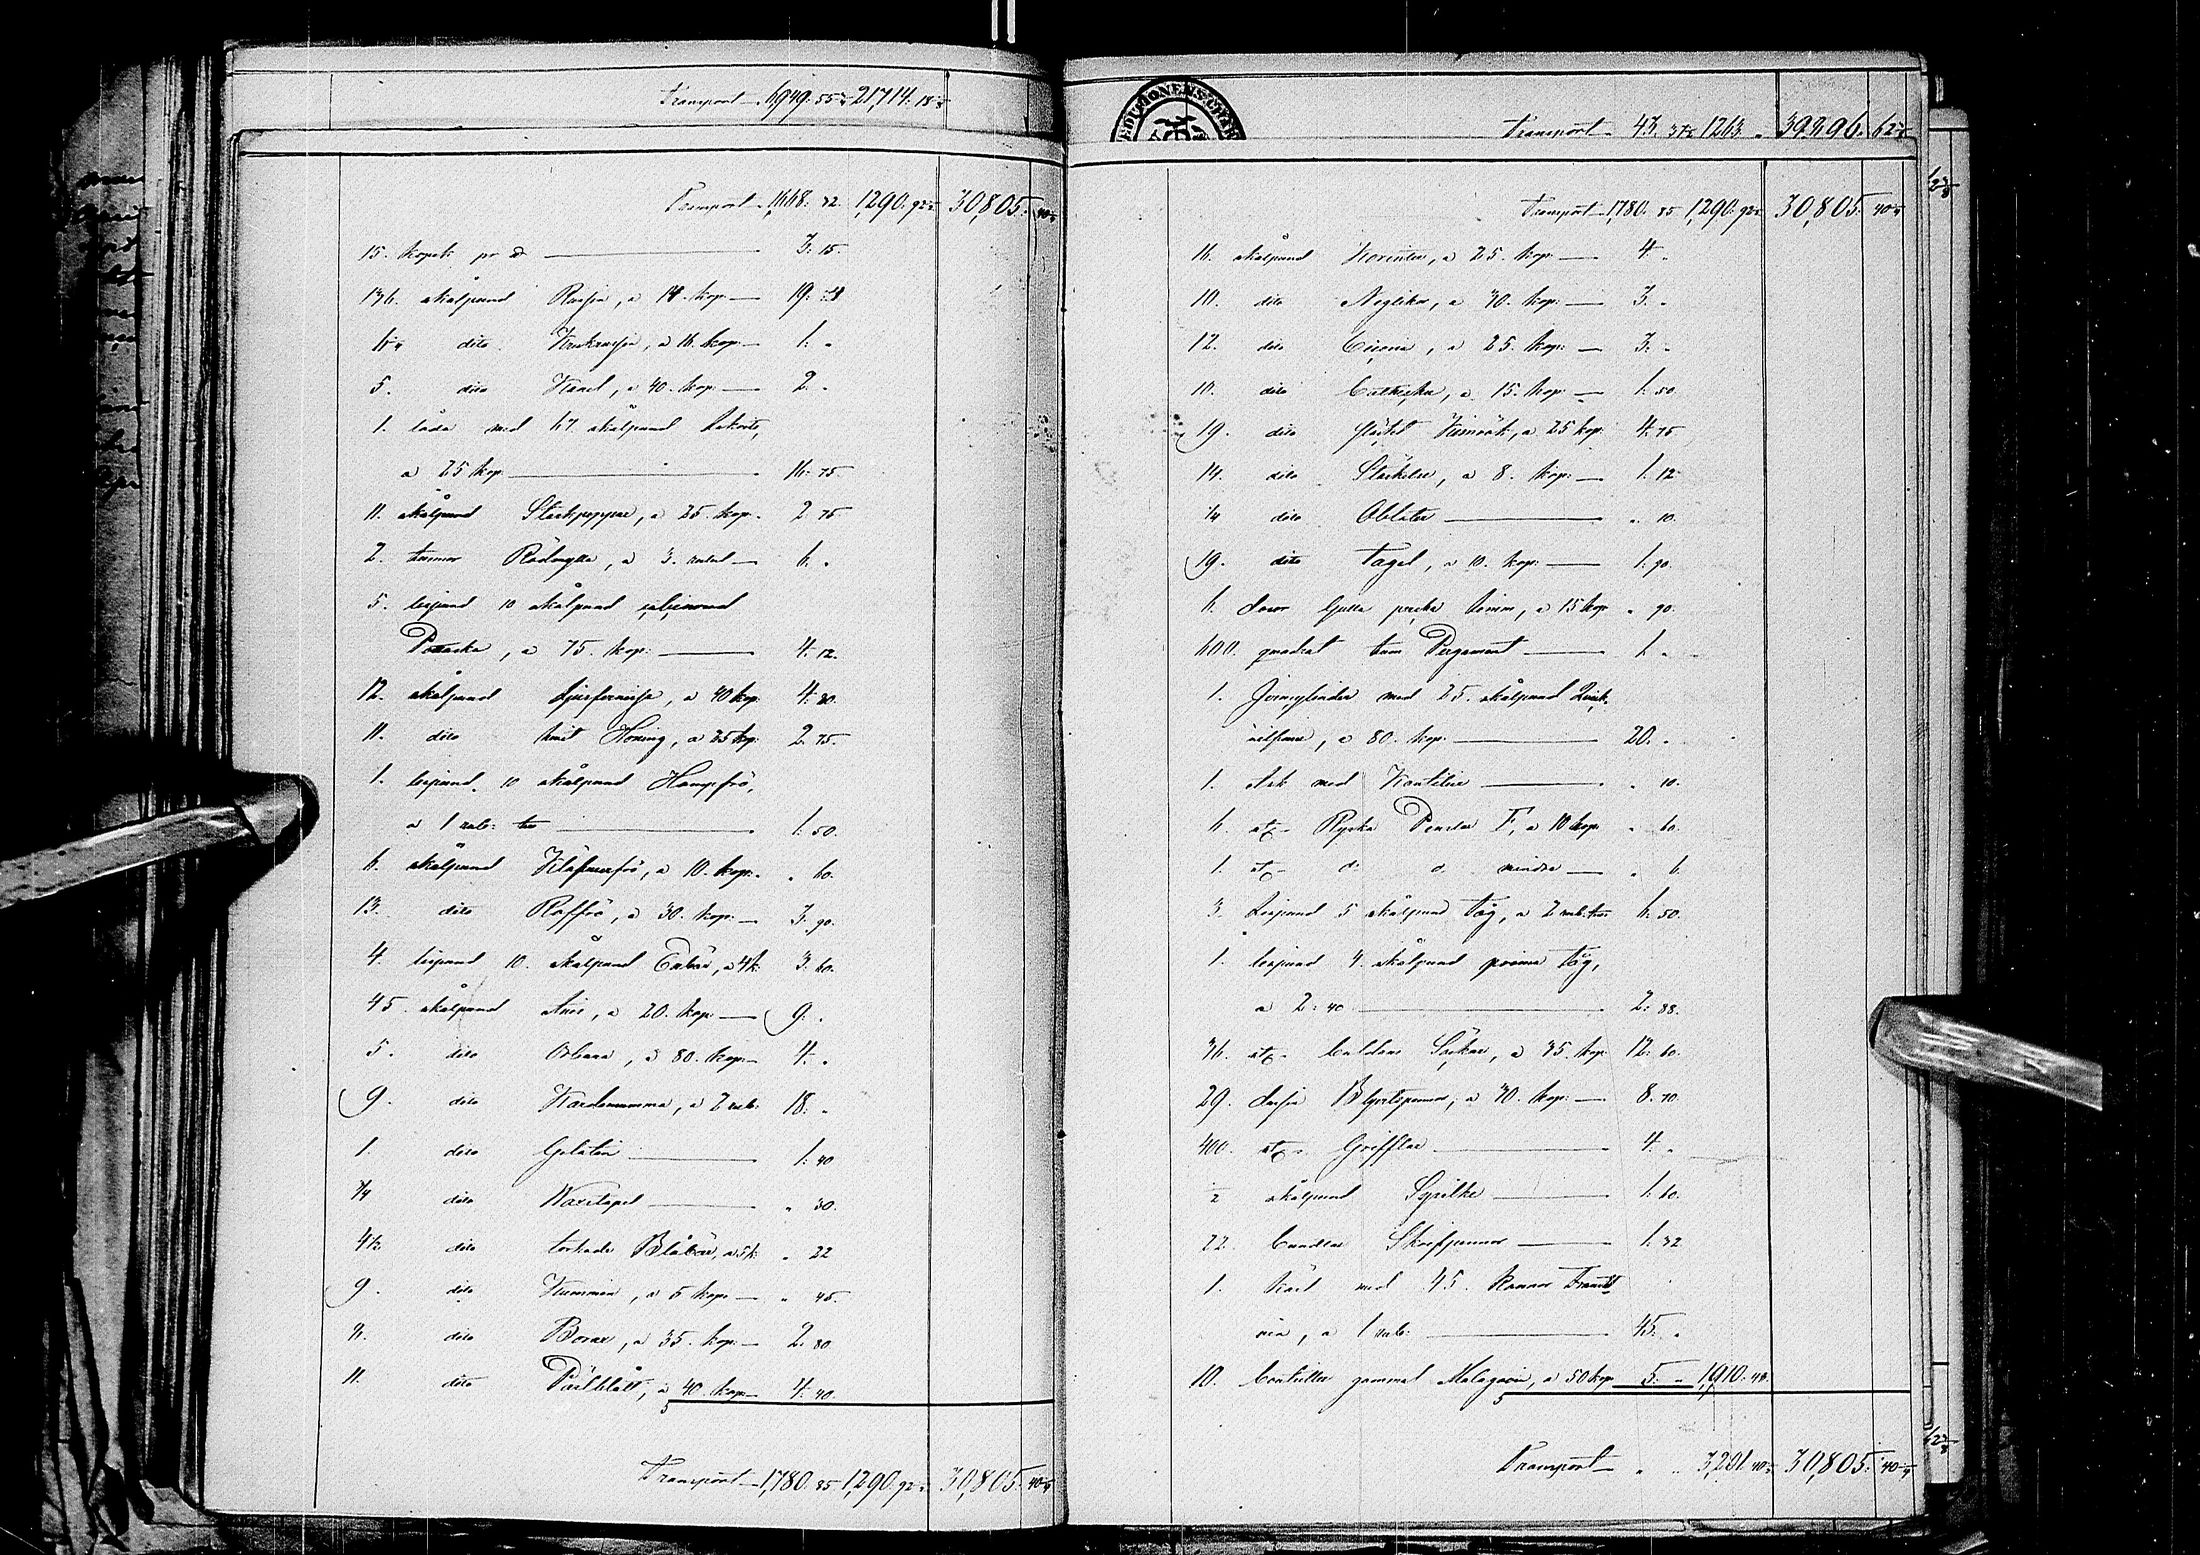 Transport 6,949. 55 21,714. 18
Transport 1,668. 32. 1,290. 92 30,805. 40
15. kopek pr d 3: 15.
136. skålpund Russin, a 14. kop. 19: 04
dito a 16. kop. 1: "
5. dito Kanel, a 40. kop. 2. "
1. låda med 67. skålpund Lakrits,
a 25 kop. 16: 75
11. skålpund Starkpeppar, a 25. kop. 2. 75
2. tunnor Rödmylla, a 3. rubel 6. "
5. lispund 10 skålpund calsinerad
Pottaska, a 75. kop: 4. 12.
12. skålpund Ljusfernissa, a 40 kop 4: 80.
11. dito hvit Honing, a 25 kop. 2. 75.
1. lispund. 10 skålpund Hampfrö,
a 1 rub: 1: 50.
6. skålpund Klöfverfrö, a 10. kop. " 60.
13. dito Roffrö, a 30. kop: 3: 90.
4. lispund 10. skålpund Enbär, a 4 k. 3. 60.
45. skålpund Anis, a 20. kop. 9. "
5. dito a 80. kop. 4. "
9. dito Kardemumma, a 2 rub. 18. "
1. dito Gelatin 1: 40
3/4 dito Waxstapel " 30.
4 1/2 dito torkade Blåbär, a 5 k. " 22
9. dito Kummin, a 5 kop. " 45.
8. dito Borax, a 35. kop. 2. 80
11. dito Pärlblått, a 40. kop. 4. 40.
Transport 1,780. 85 1,290. 92 30,805. 40
Transport 43. 37 1,263. " 39,396. 62
Transport 1,780. 85 1,290. 92 30,805. 40
16. skålpund Korinter, a 25. kop. 4. "
10. dito Neglikor, a 30. kop: 3: "
12. dito a 25. kop: 3: "
10. dito a 15. kop. 1. 50
19. dito Kimrök, a 25 kop: 4: 75
14. dito Stärkelse, a 8. kop: 1: 12
1/4 dito Oblater " 10.
19. dito Tagel, a 10. kop: 1: 90.
6. dosor a 15 kop " 90.
600. quadrat tum Pergament 6. "
1. Jerncylinder med 25. skålpund Quick-
silfver, a 80. kop. 20. "
1. Ask med Kantiljer " 10.
6. st. Ryska Penslar F, a 10 kop. " 60.
1. st. d: d. mindre " 6.
3. Lispund 5 skålpund Tåg, a 2 rub. 6. 50.
1. lispund 4. skålpund prima tåg,
a 2: 40 2: 88.
36. st. Buldans Säckar, a 35. kop: 12: 60.
29. dussin Blyertspennor, a 30. kop: 8. 70.
400. st. Grifflar 4. "
1/2 skålpund Sysilke 1. 60.
22. bundtar Skrifpennor 1. 32
1. Kärl med 45. kannor Franskt
vin, a 1 rub: 45. "
10. bouteiller gammal Malagavin, a 50 kop 5: " 1,910. 48.
Transport " " 3,201. 40 30,805. 40